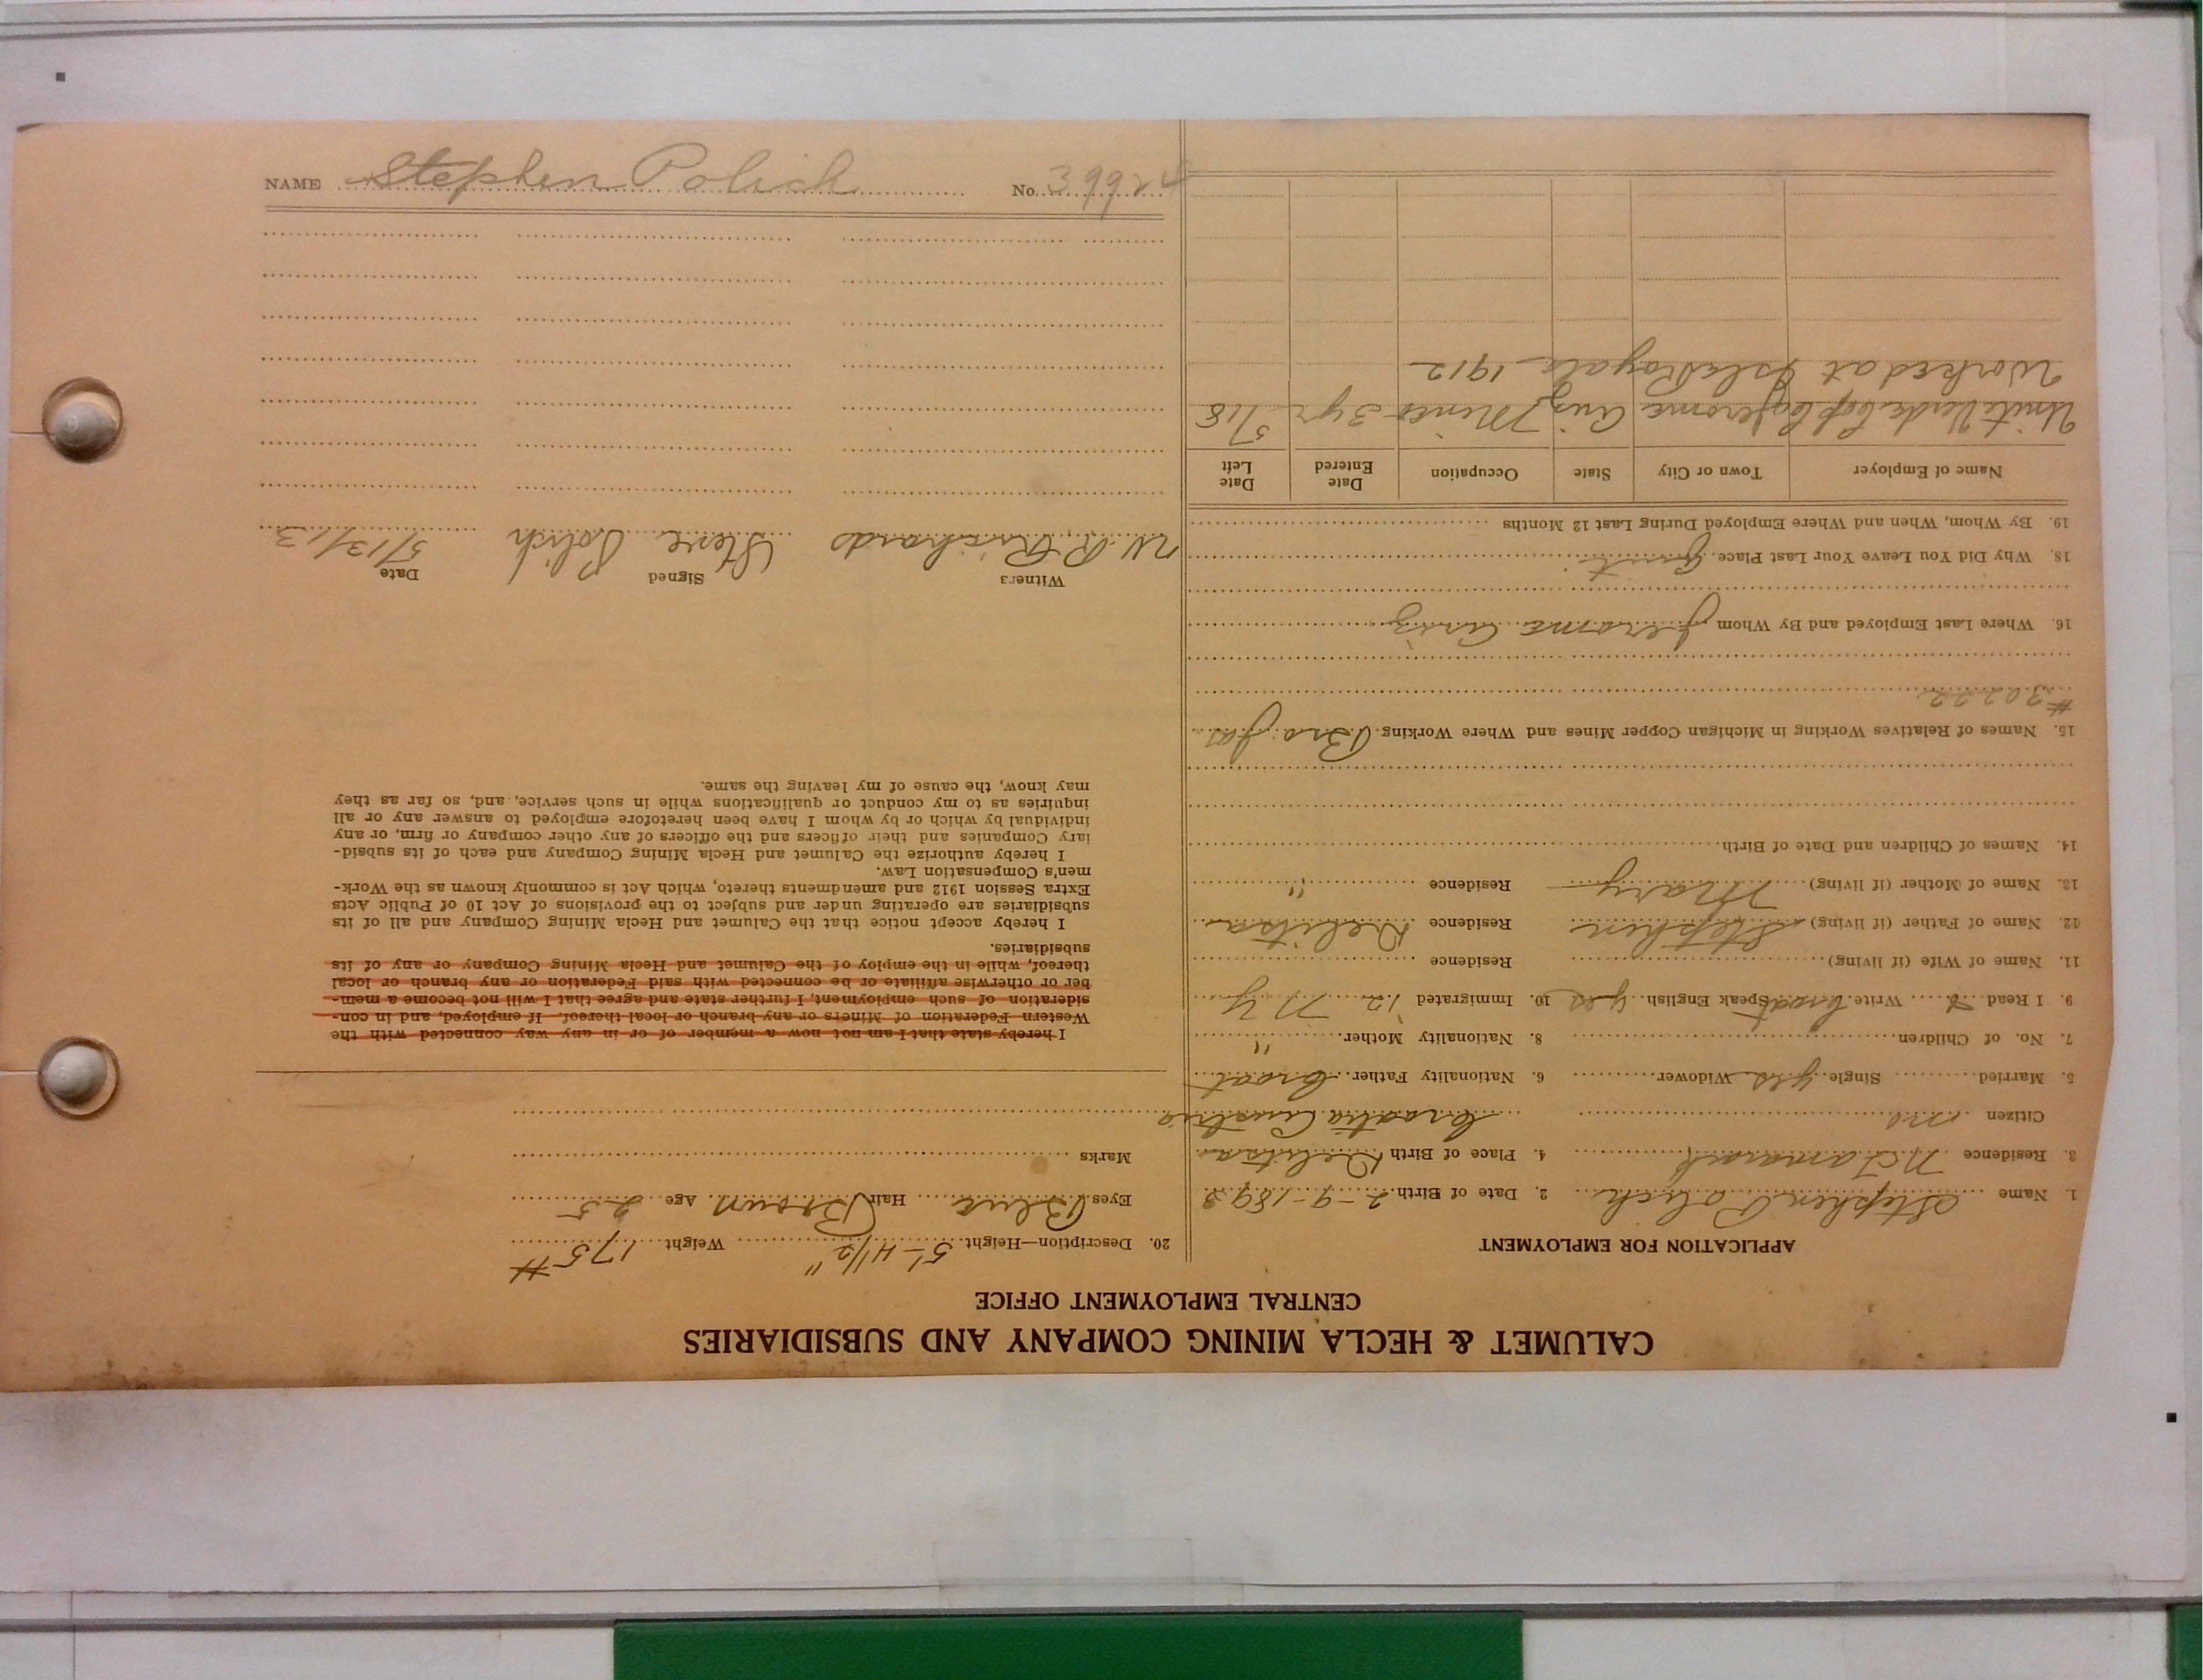 NAME Stephen Polich No. 39924
CALUMET & HECLA MINING COMPANY AND SUBSIDIARIES
CENTRAL EMPLOYMENT OFFICE
APPLICATION FOR EMPLOYMENT
1. Name Stephen Polich 2. Date of Birth 2-9-1893
3. Residence N. Tamarack 4. Place of Birth Delitsa
Citizen no Croatia Austria
5. Married Single yes Widower 6. Nationality Father Croat
7. No. of Children 8. Nationality Mother "
9. I Read & Write Croat Speak English yes 10. Immigrated 12 N Y
11. Name of Wife (if living) Residence
12. Name of Father (if living) Stephen Residence Delitsa
13. Name of Mother (if living) Mary Residence "
14. Names of Children and Date of Birth
15. Names of Relatives Working in Michigan Copper Mines and Where Working Bro Jos
#30222
16. Where Last Employed and By Whom Jerome Ariz
18. Why Did You Leave Your Last Place Quit
19. By Whom, When and Where Employed During Last 12 Months
Name of Employer Town or City State Occupation Date Entered Date Left
United Verde Cop Co Jerome Ariz Miner 3 yr 5/18
Worked at Isle Royale 1912
20. Description—Height 5'-4 1/2" Weight 175#
Eyes Blue Hair Brown Age 25
Marks
I hereby state that I am not now a member of or in any way connected with the
Western Federation of Miners or any branch or local thereof. If employed, and in con-
sideration of such employment, I further state and agree that I will not become a mem-
ber or otherwise affiliate or be connected with said Federation or any branch or local
thereof, while in the employ of the Calumet and Hecla Mining Company or any of its
subsidiaries.
I hereby accept notice that the Calumet and Hecla Mining Company and all of its
subsidiaries are operating under and subject to the provisions of Act 10 of Public Acts
Extra Session 1912 and amendments thereto, which Act is commonly known as the Work-
men's Compensation Law.
I hereby authorize the Calumet and Hecla Mining Company and each of its subsid-
iary Companies and their officers and the officers of any other company or firm, or any
individual by which or by whom I have been heretofore employed to answer any or all
inquiries as to my conduct or qualifications while in such service, and, so far as they
may know, the cause of my leaving the same.
Witness Signed Date
W. R. Richards Steve Polich 5/13/13